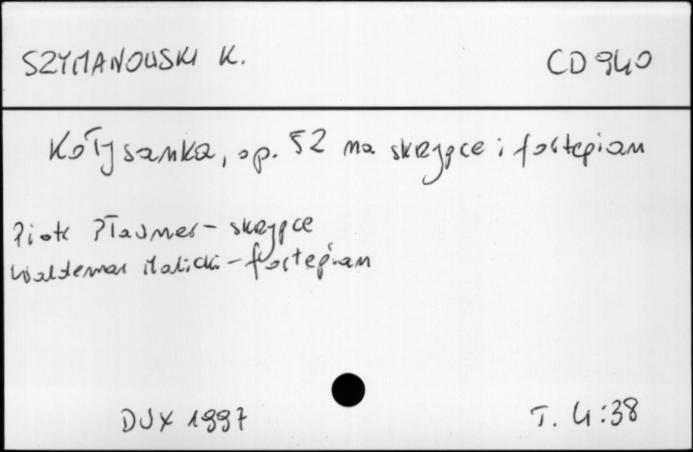 SZYMANOWSKI K.
CD 940
Kołysanka, op. 52 na skrzypce i fortepian
Piotr Pławner - skrzypce
Waldemar Malicki - fortepian
DUX 1997
T. 4:38